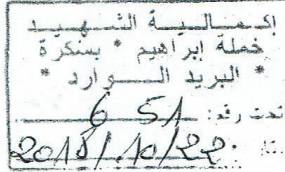 إكـمـالـيـة الشهيـد
خملة إبراهيم * بسكرة
* البريد الـــوارد *
تحت رقم: 651
22/10/2018